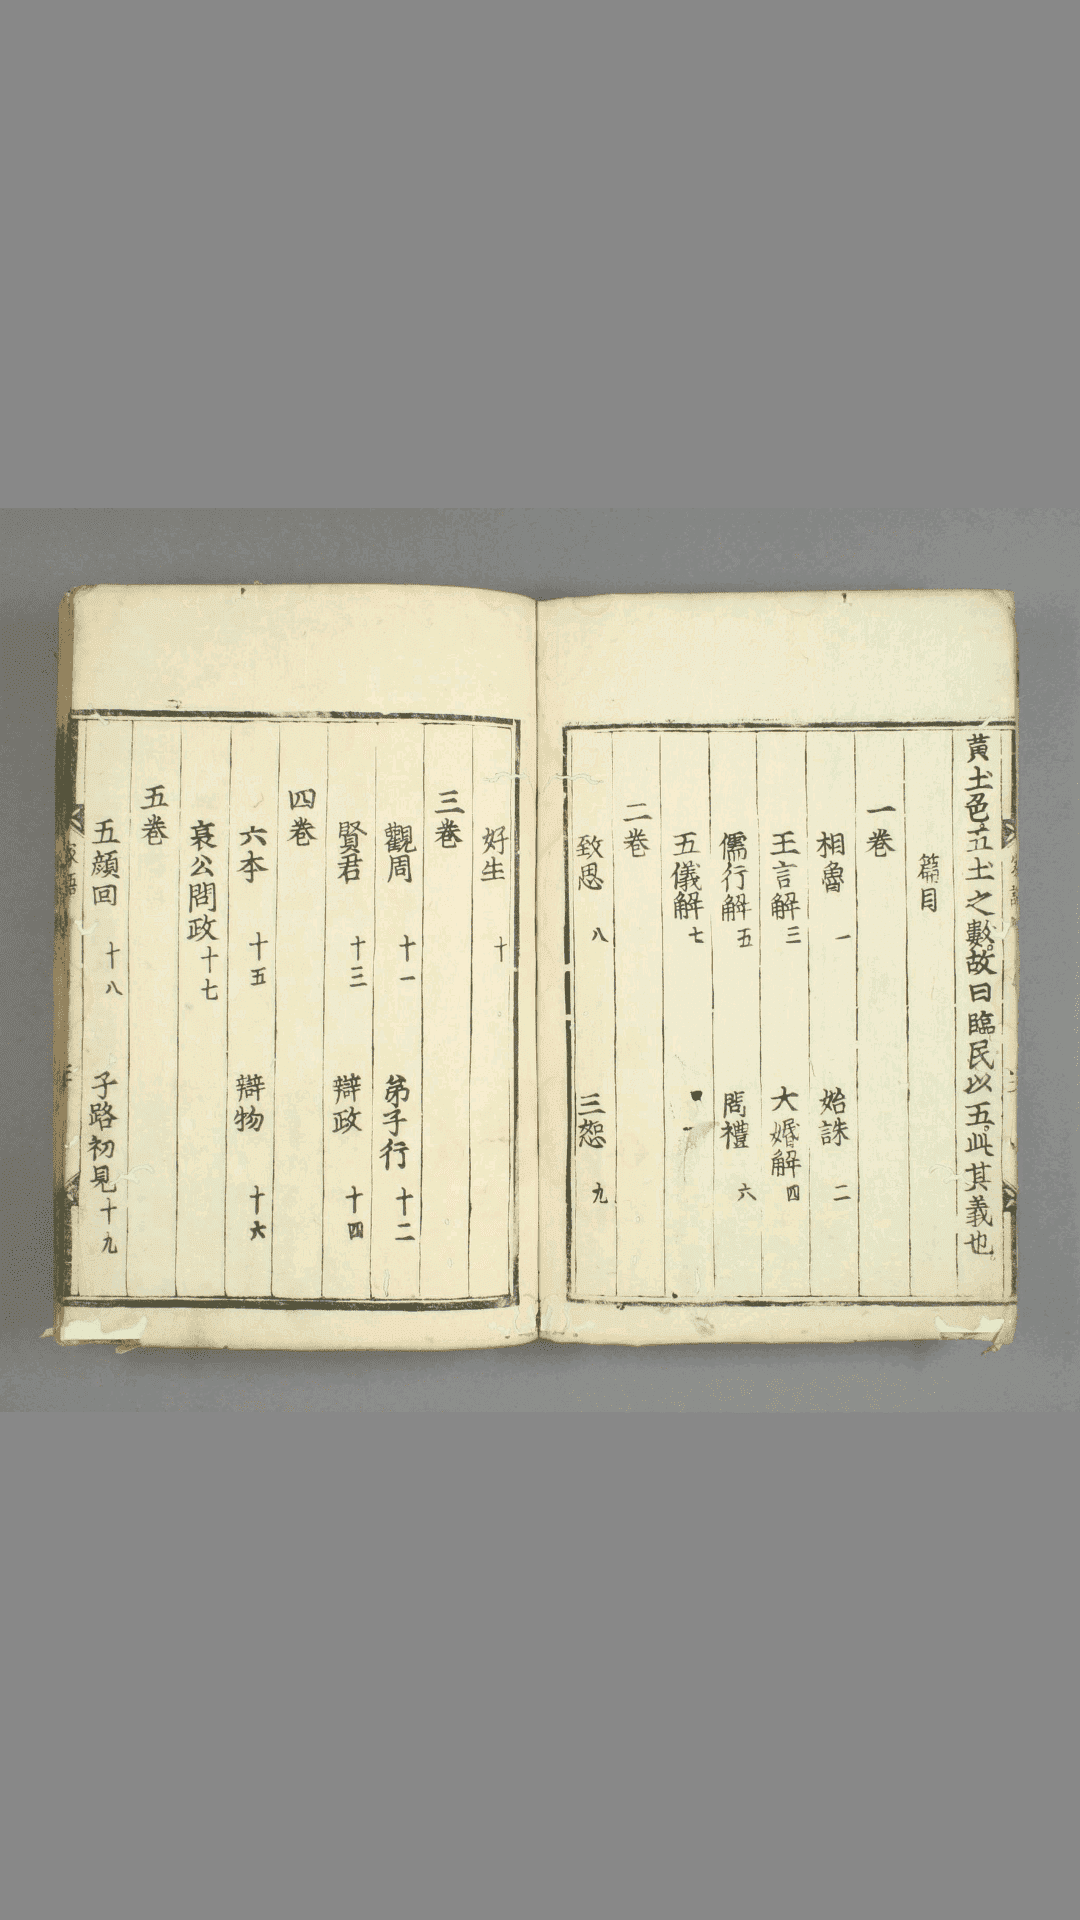 黃土色五土之數故曰臨民以五此其義也
篇目
一卷
相魯 一 始誅 二
王言解 三 大婚解 四
儒行解 五 問禮 六
五儀解 七
二卷
致思 八 三恕 九
好生 十
三卷
觀周 十一 弟子行 十二
賢君 十三 辯政 十四
四卷
六本 十五 辯物 十六
哀公問政 十七
五卷
五顔回 十八 子路初見 十九
家語